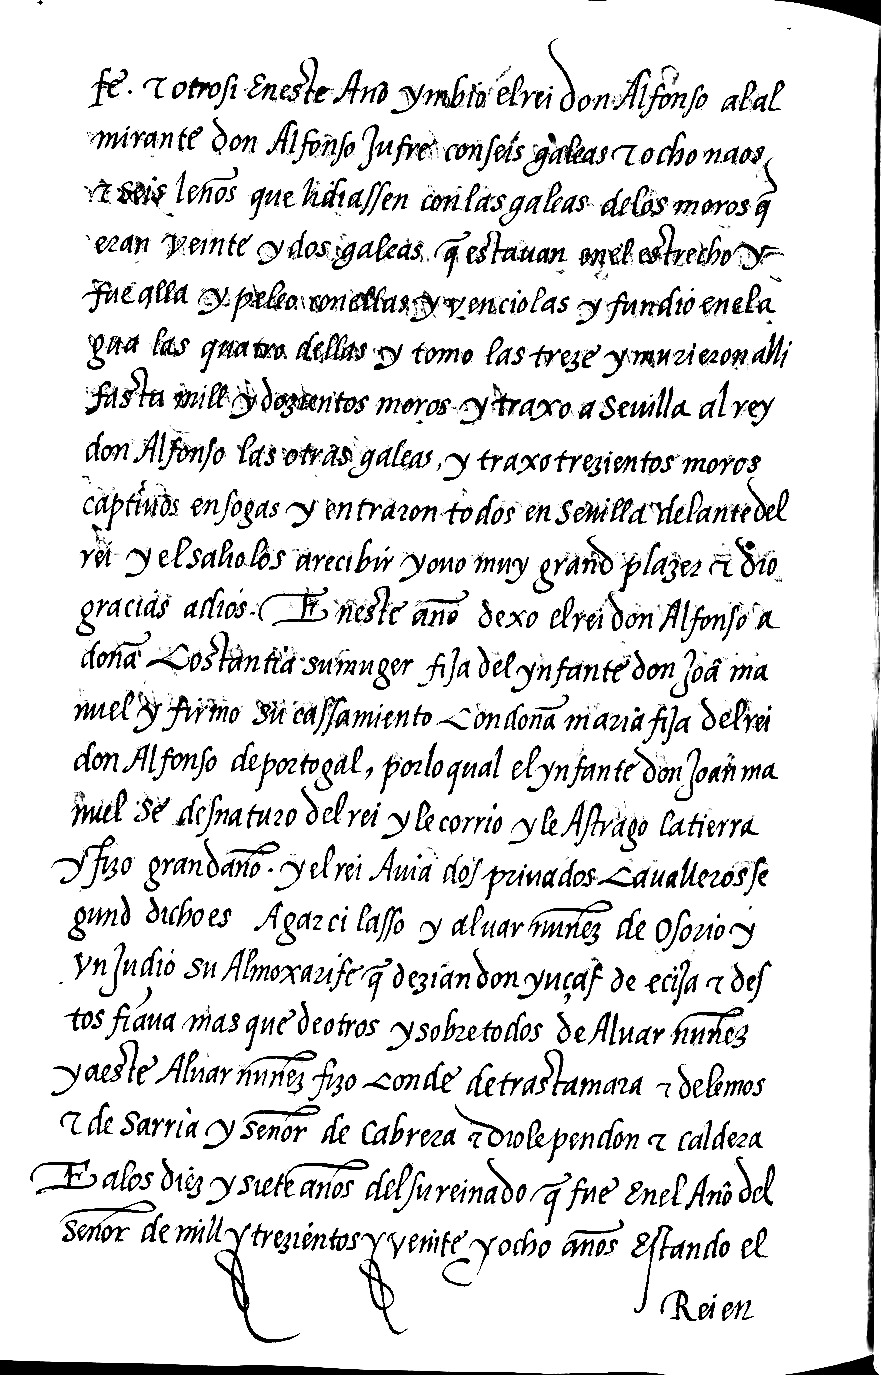 fe. ꞇ otrosi Eneste Año ymbio el rei don Alfonso al al
mirante don Alfonso Jufre con seis galeas ꞇ ocho naos
ꞇ seis leños que lidiassen con las galeas delos moros q̃
eran veinte y dos galeas q̃ estauan en el estrecho y
fue alla y peleo con ellas y venciolas y fundio enel a
gua las quatro dellas y tomo las treze y murieron alli
fasta mill y dozientos moros y traxo a Sevilla al rey
don Alfonso las otras galeas, y traxo trezientos moros
captiuos en sogas y entraron todos en Sevilla delante del
rei y el saliolos a recibir y ouo muy grand plazer ꞇ dio
gracias a dios. Eneste año dexo el rei don Alfonso a
doña Costantia su muger fija del ynfante don Joã ma
nuel y firmo su cassamiento con doña maria fija del rei
don Alfonso de portogal, por lo qual el ynfante don Joan ma
nuel se desnaturo del rei y le corrio y le Astrago la tierra
y fizo grand año. y el rei Avia dos priuados Cavalleros se
gund dicho es A garci lasso y aluar nuñez de Osorio y
vn Judio su Almoxarife q̃ dezian don yuçaf de ecija ꞇ des
tos fiaua mas que de otros y sobre todos de Aluar nuñez
y a este Aluar nuñez fizo Conde de trastamara ꞇ de lemos
ꞇ de Sarria y señor de Cabrera ꞇ diole pendon ꞇ caldera
E alos diez y siete años del su reinado q̃ fue Enel Año del
señor de mill y trezientos y veinte y ocho años Estando el
Rei en